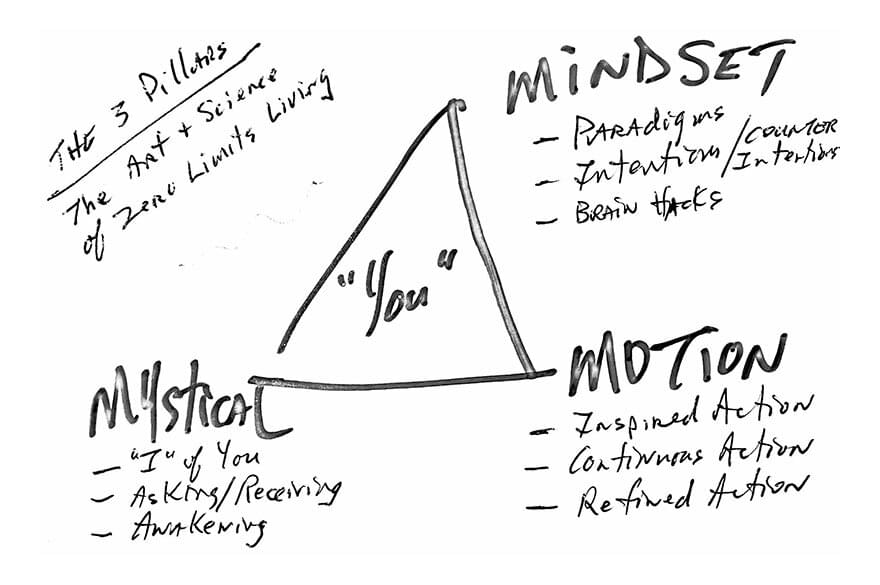 THE 3 Pillars
The Art + Science
of Zero Limits Living
MINDSET
- Paradigms
- Intentions/COUNTER Intentions
- BRAIN HACKS
"You"
Mystical
- "I" of You
- Asking/Receiving
- Awakening
MOTION
- Inspired Action
- Continuous Action
- Refined Action